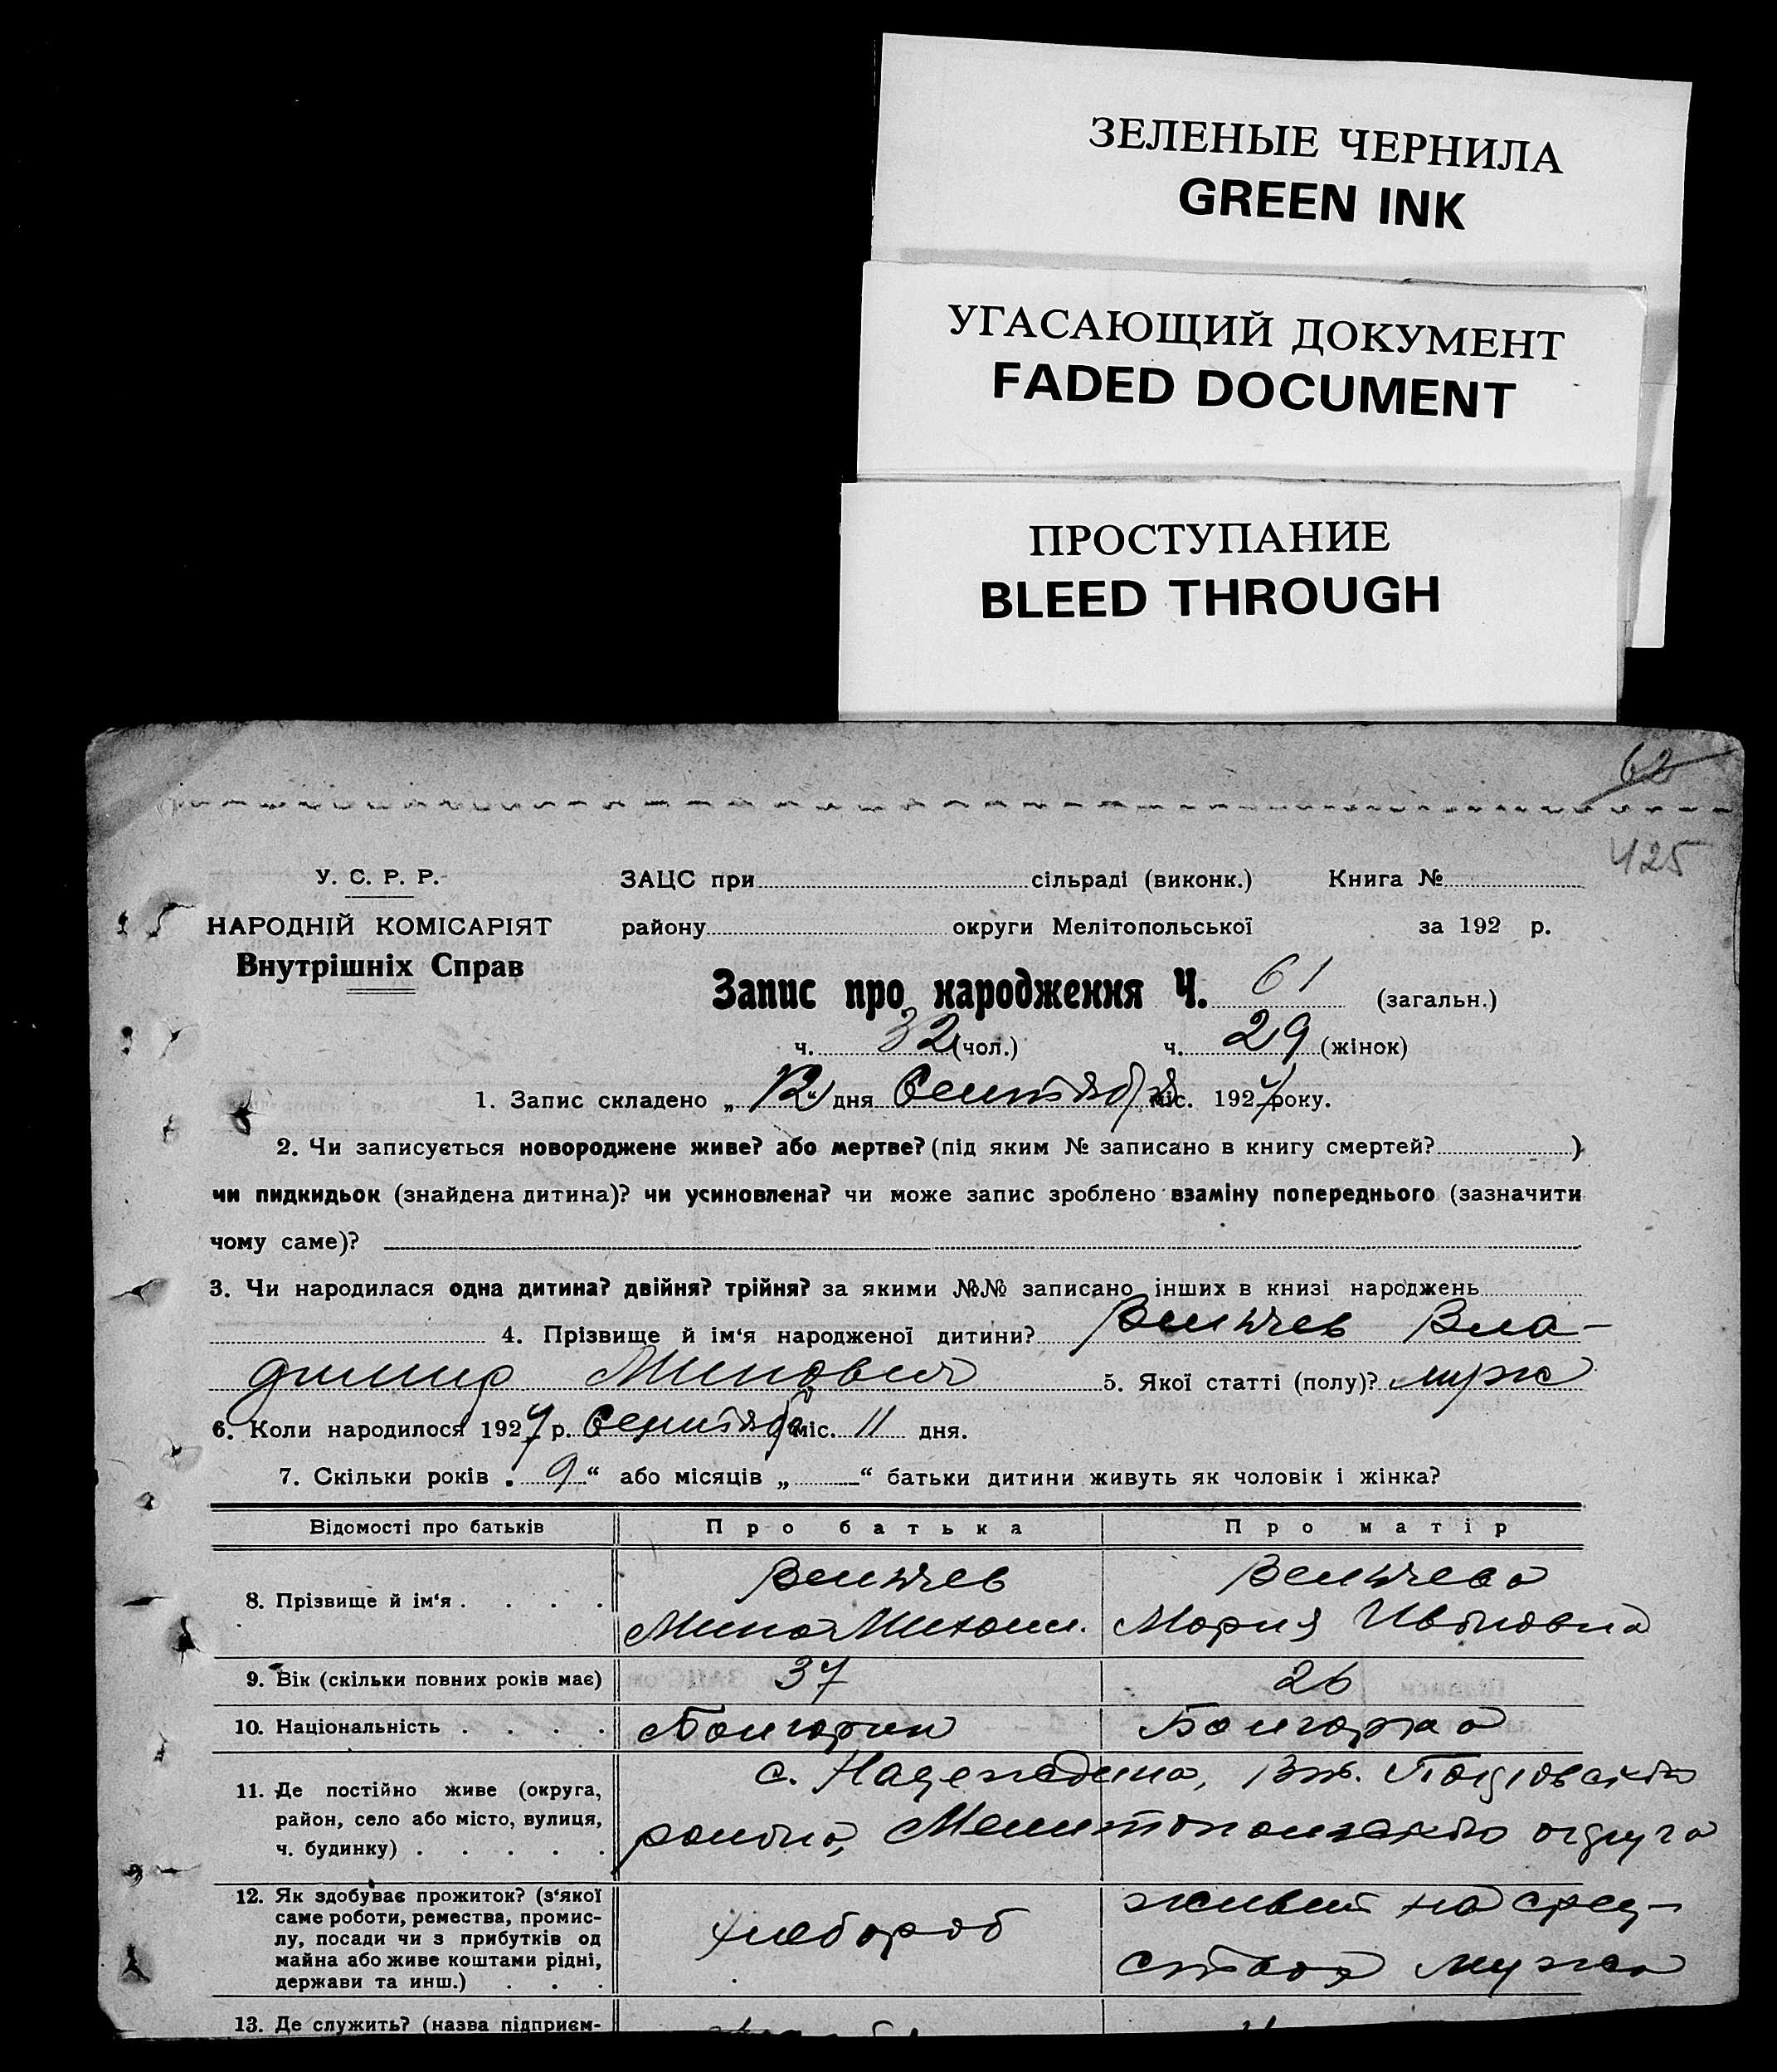 ЗЕЛЕНЫЕ ЧЕРНИЛА
GREEN INK
УГАСАЮЩИЙ ДОКУМЕНТ
FADED DOCUMENT
ПРОСТУПАНИЕ
BLEED THROUGH
62
425
У. С. Р. Р.
НАРОДНІЙ КОМІСАРІЯТ
Внутрішніх Справ
ЗАЦС при сільраді (виконк.) Книга №
району округи Мелітопольської за 192 р.
Запис про народження Ч. 61 (загальн.)
ч. 32 (чол.) ч. 29 (жінок)
1. Запис складено „ 12 " дня Сентября міс. 1924 року.
2. Чи записується новороджене живе? або мертве? (під яким № записано в книгу смертей? )
чи пидкидьок (знайдена дитина)? чи усиновлена? чи може запис зроблено взаміну попереднього (зазначити
чому саме)?
3. Чи народилася одна дитина? двійня? трійня? за якими №№ записано інших в книзі народжень
4. Прізвище й ім‘я народженої дитини? Вельчев Вла-
димир Минович 5. Якої статті (полу)? муж
6. Коли народилося 1924 р. Сентябр міс. 11 дня.
7. Скільки років „ 9 “ або місяців „ “ батьки дитини живуть як чоловік і жінка?
Відомості про батьків Про батька Про матір
8. Прізвище й ім‘я . . . .
Вельчев
Мина Михаил.
Вельчева
Мария Ивановна
9. Вік (скільки повних років має) 37 26
10. Національність . . . . Болгарин Болгарка
11. Де постійно живе (округа,
район, село або місто, вулиця,
ч. будинку) . . . . .
с. Надеждина,
района, Мелитопольского округа
12. Як здобуває прожиток? (з‘якої
саме роботи, ремества, промис-
лу, посади чи з прибутків од
майна або живе коштами рідні,
держави та инш.) . . .
хлебороб
живет на сред-
ства мужа
13. Де служить? (назва підприєм-